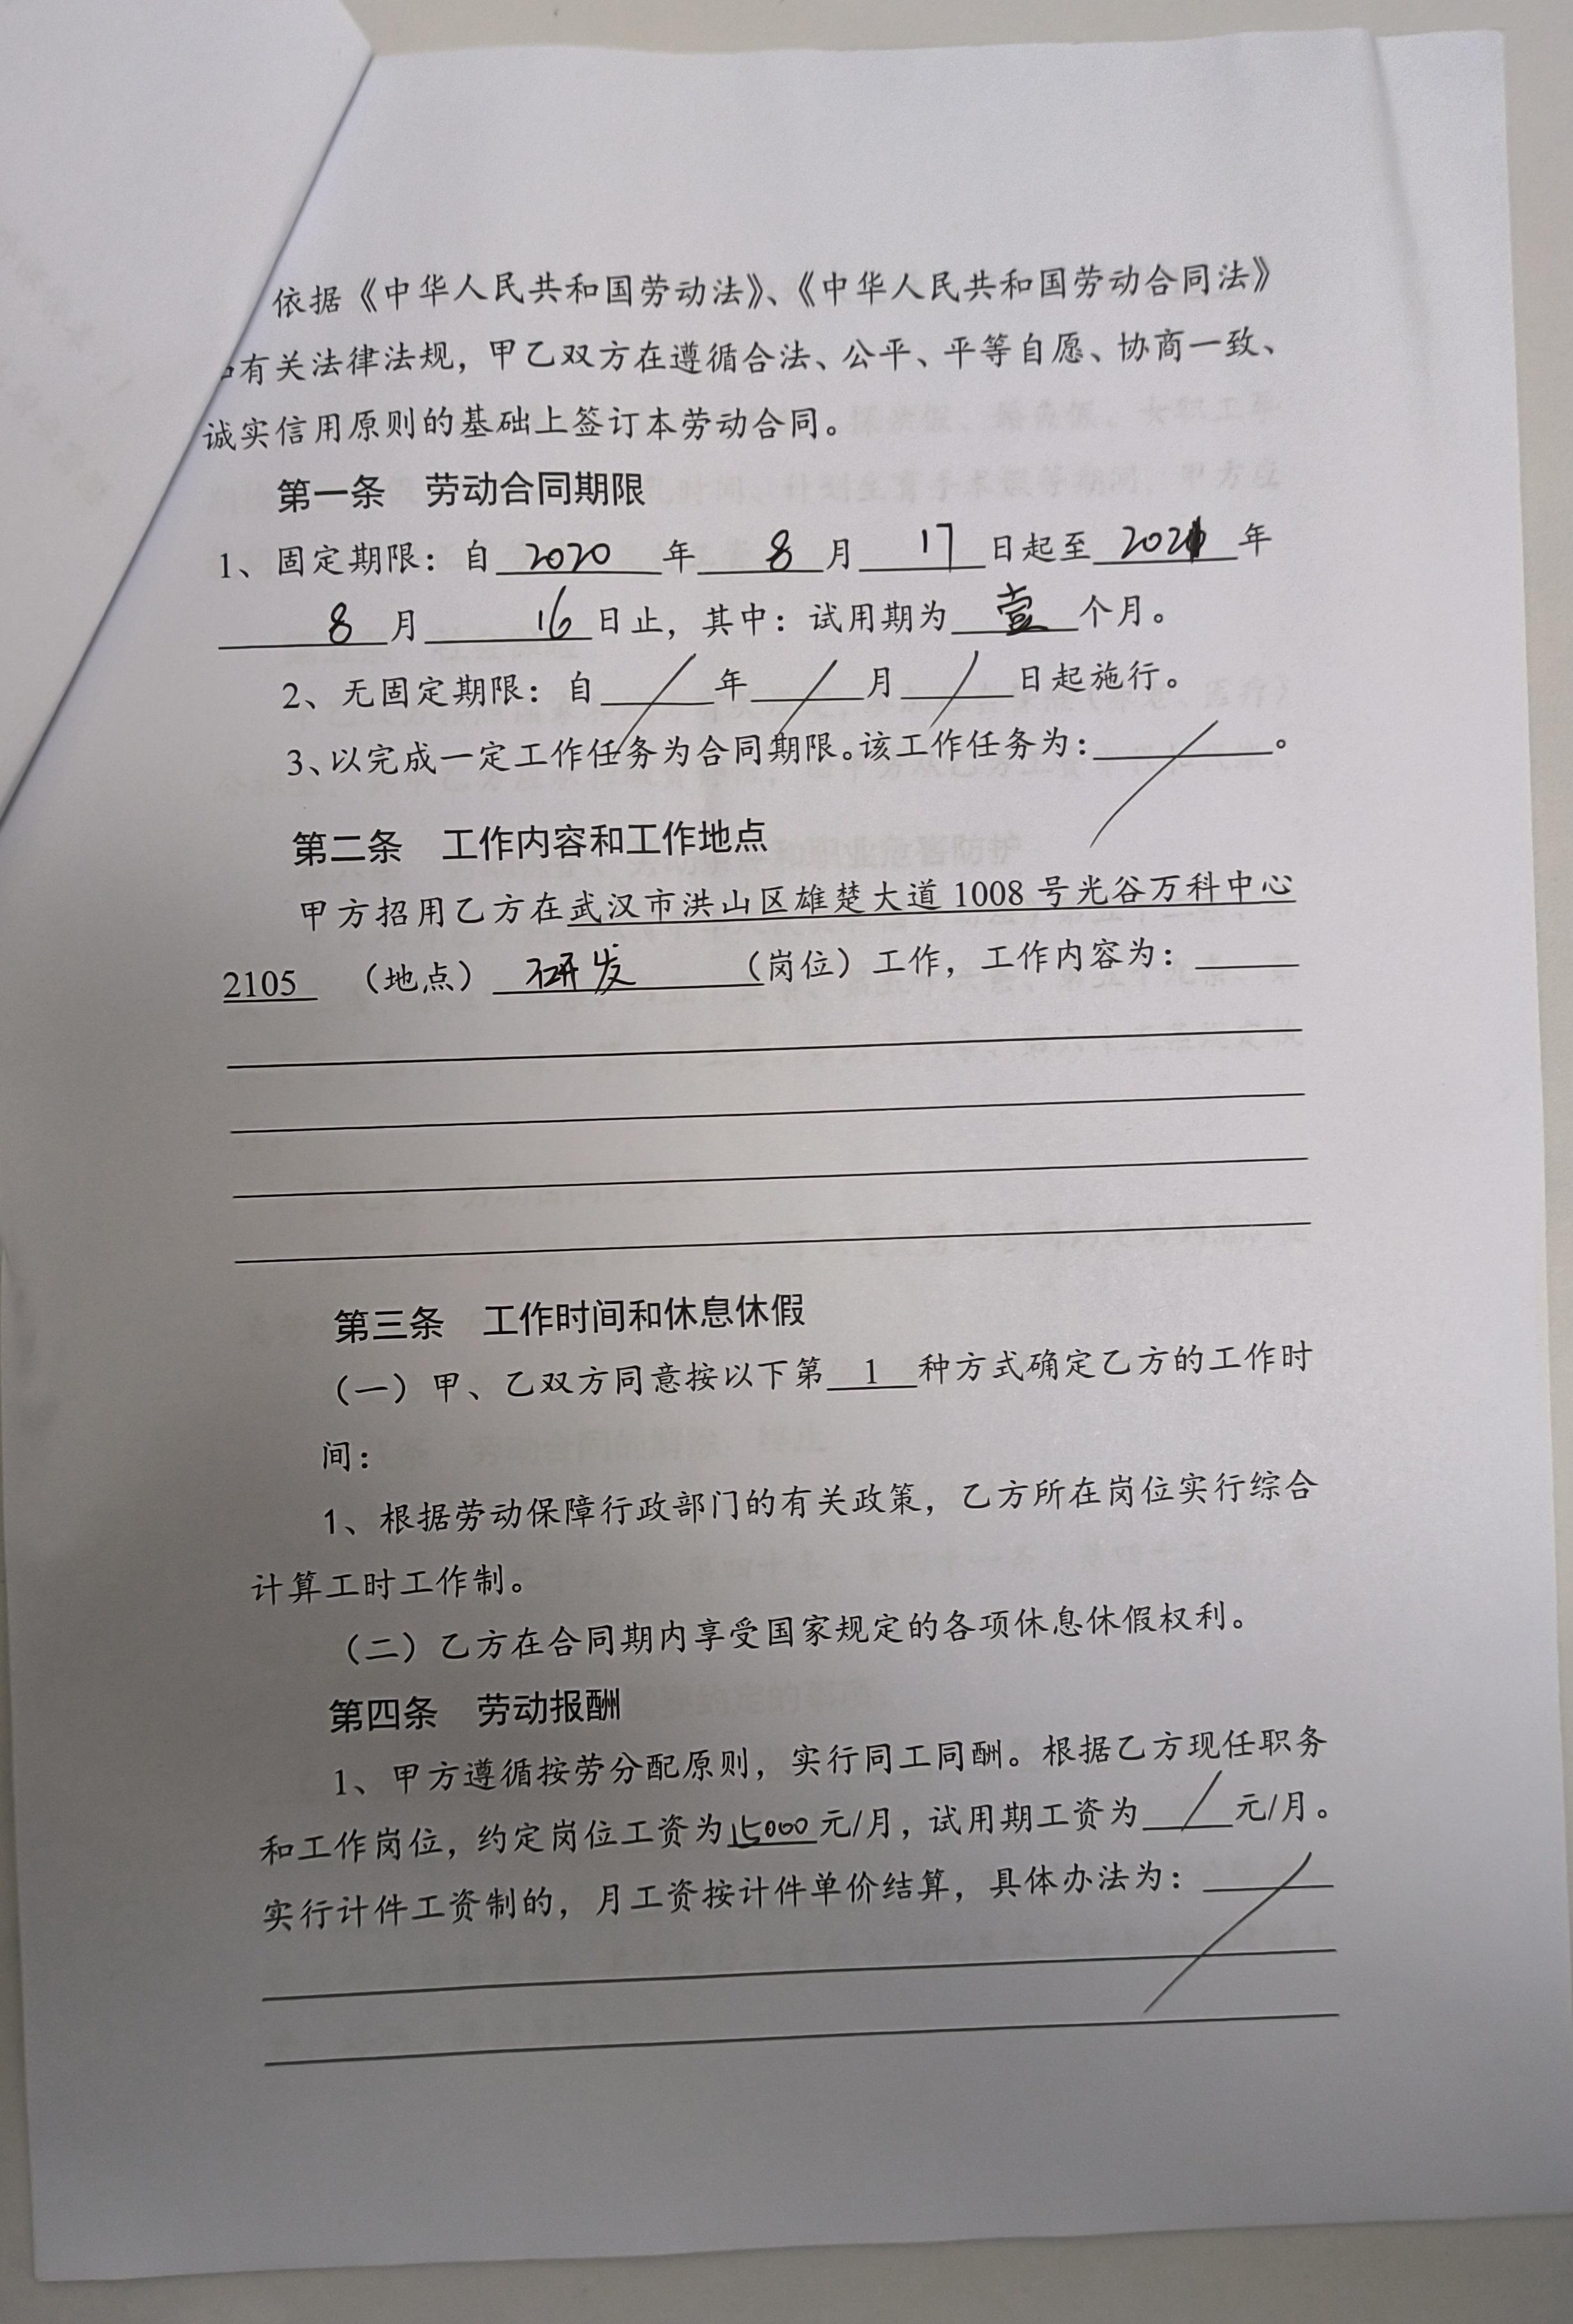 依据《中华人民共和国劳动法》、《中华人民共和国劳动合同法》
有关法律法规，甲乙双方在遵循合法、公平、平等自愿、协商一致、
诚实信用原则的基础上签订本劳动合同。
第一条 劳动合同期限
1、固定期限：自 2020 年 8 月 17 日起至 2021 年
8 月 16 日止，其中：试用期为 壹 个月。
2、无固定期限：自 / 年 / 月 / 日起施行。
3、以完成一定工作任务为合同期限。该工作任务为： / 。
第二条 工作内容和工作地点
甲方招用乙方在武汉市洪山区雄楚大道 1008 号光谷万科中心
2105 （地点） 研发 （岗位）工作，工作内容为：
第三条 工作时间和休息休假
（一）甲、乙双方同意按以下第 1 种方式确定乙方的工作时
间：
1、根据劳动保障行政部门的有关政策，乙方所在岗位实行综合
计算工时工作制。
（二）乙方在合同期内享受国家规定的各项休息休假权利。
第四条 劳动报酬
1、甲方遵循按劳分配原则，实行同工同酬。根据乙方现任职务
和工作岗位，约定岗位工资为 15000 元/月，试用期工资为 / 元/月。
实行计件工资制的，月工资按计件单价结算，具体办法为： /